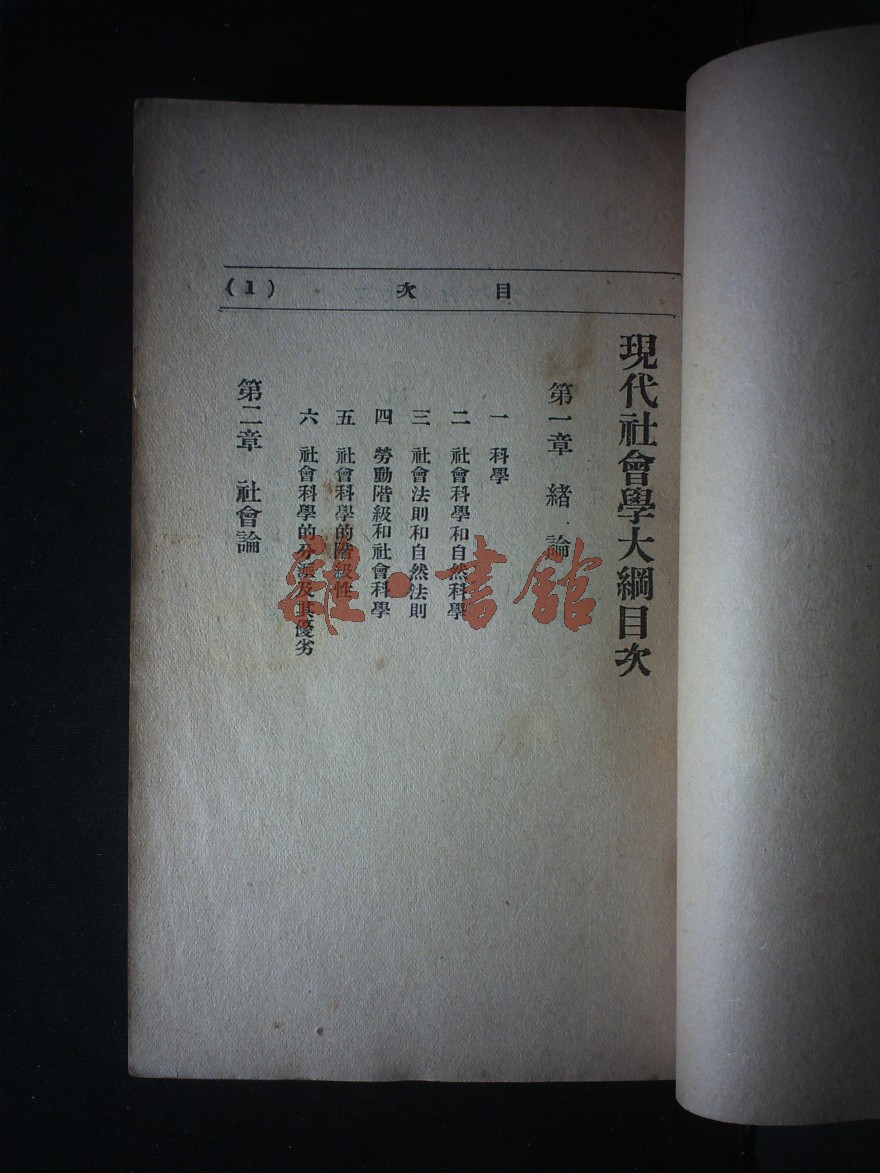 目次
(1)
現代社會學大綱目次
第一章 緒論
一 科學
二 社會科學和自然科學
三 社會法則和自然法則
四 勞動階級和社會科學
五 社會科學的階級性
六 社會科學的分派及其優劣
第二章 社會論
書館